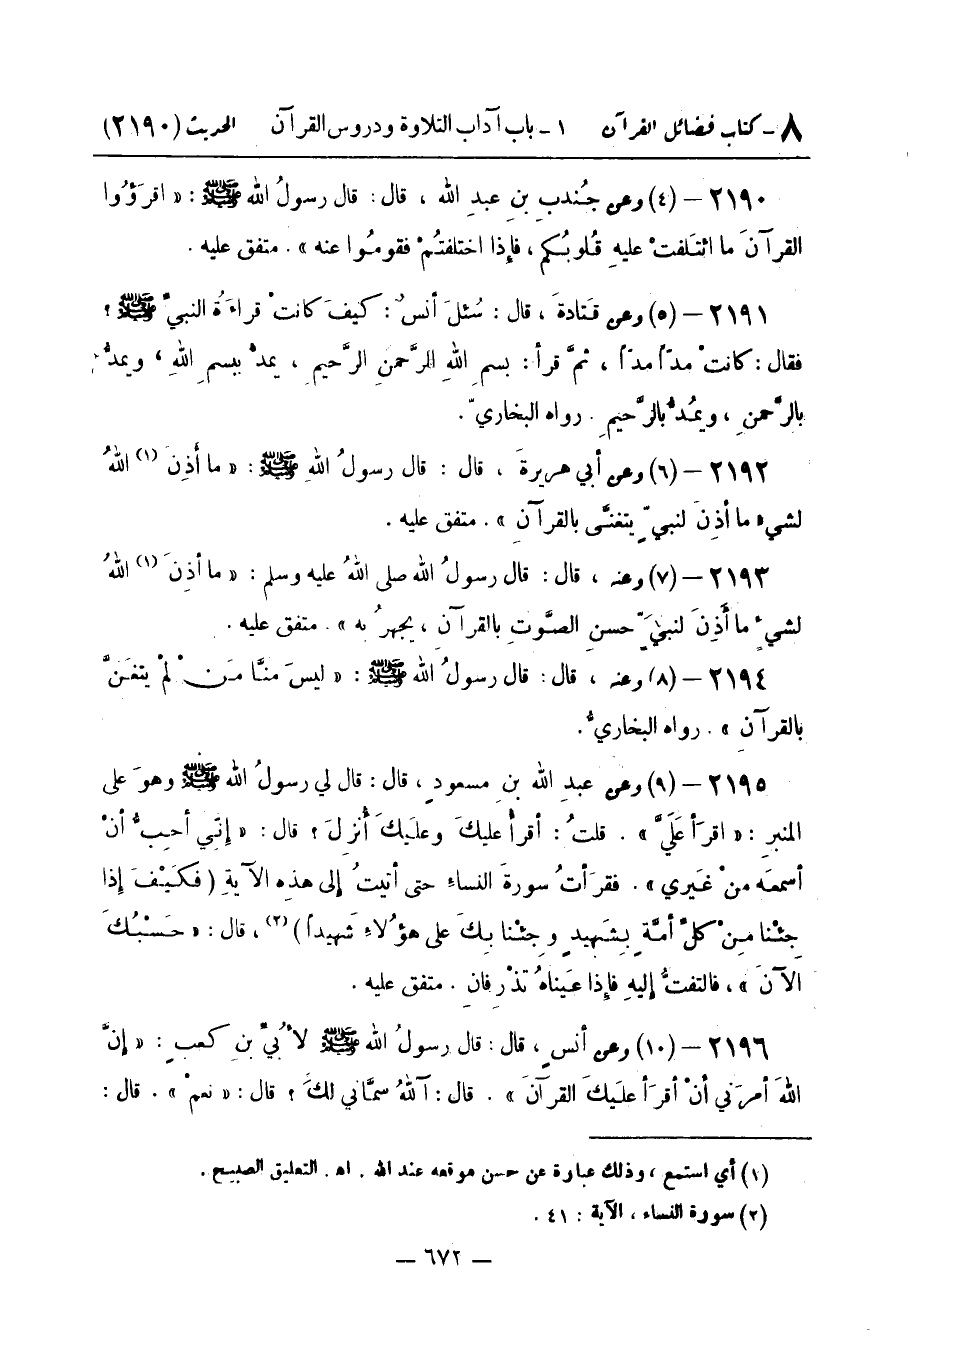 ٨ - كتاب فضائل القرآن ١ - باب آداب التلاوة ودروس القرآن الحديث (٢١٩٠)
٢١٩٠ – (٤) وعن جُندبِ بنِ عبدِ الله ، قال : قال رسولُ الله ﷺ : « اقرَؤُوا
القرآنَ ما ائتَلفتْ عليهِ قُلوبُكم ، فإِذا اختلفتُمْ فقومُوا عنه » . متفق عليه .
٢١٩١ – (٥) وعن قَتادةَ ، قال : سُئلَ أنسٌ : كيفَ كانتْ قراءَةُ النبيِّ ﷺ ؟
فقال : كانتْ مدّاً مدّاً ، ثمَّ قرأَ : بسمِ اللهِ الرَّحمنِ الرَّحيمِ ، يمدُّ ببسمِ اللهِ ، ويمدُّ
بالرَّحمنِ ، ويمُدُّ بالرَّحيمِ . رواه البخاريّ .
٢١٩٢ – (٦) وعن أبي هريرةَ ، قال : قال رسولُ اللهِ ﷺ : « ما أَذِنَ (١) اللهُ
لشيءٍ ما أَذِنَ لنبيٍّ يتغنَّى بالقرآنِ » . متفق عليه .
٢١٩٣ – (٧) وعنه ، قال : قال رسولُ الله صلى اللهُ عليه وسلم : « ما أَذِنَ (١) اللهُ
لشيءٍ ما أَذِنَ لنبيٍّ حسنِ الصَّوتِ بالقرآنِ ، يجهرُ به » . متفق عليه .
٢١٩٤ – (٨) وعنه ، قال : قال رسولُ الله ﷺ : « ليسَ منَّا مَنْ لمْ يتغَنَّ
بالقرآنِ » . رواه البخاريُّ .
٢١٩٥ – (٩) وعن عبدِ الله بنِ مسعودٍ ، قال : قال لي رسولُ الله ﷺ وهوَ على
المنبرِ : « اقرَأ عَلَيَّ » . قلتُ : أقرأُ عليكَ وعليكَ أُنزلَ ؟ قال : « إِنّي أحبُّ أنْ
أسمعَه منْ غَيري » . فقرأتُ سورةَ النساءِ حتى أتيتُ إِلى هذهِ الآيةِ ( فَكَيْفَ إِذا
جِئْنا مِنْ كلِّ أمَّةٍ بِشَهيدٍ وجِئْنا بِكَ على هؤُلاءِ شَهيداً ) (٢) ، قال : « حَسْبُكَ
الآنَ » ، فالتفتُّ إِليهِ فإِذا عَيناهُ تَذْرِفانِ . متفق عليه .
٢١٩٦ – (١٠) وعن أنسٍ ، قال : قال رسولُ الله ﷺ لأُبيِّ بنِ كعبٍ : « إِنَّ
اللهَ أمرَني أنْ أقرَأ عليكَ القرآنَ » . قال : آللهُ سمَّاني لكَ ؟ قال : « نعمْ » . قال :
(١) أي استمع ، وذلك عبارة عن حسن موقعه عند الله . اه . التعليق الصبيح .
(٢) سورة النساء ، الآية : ٤١ .
– ٦٧٢ –